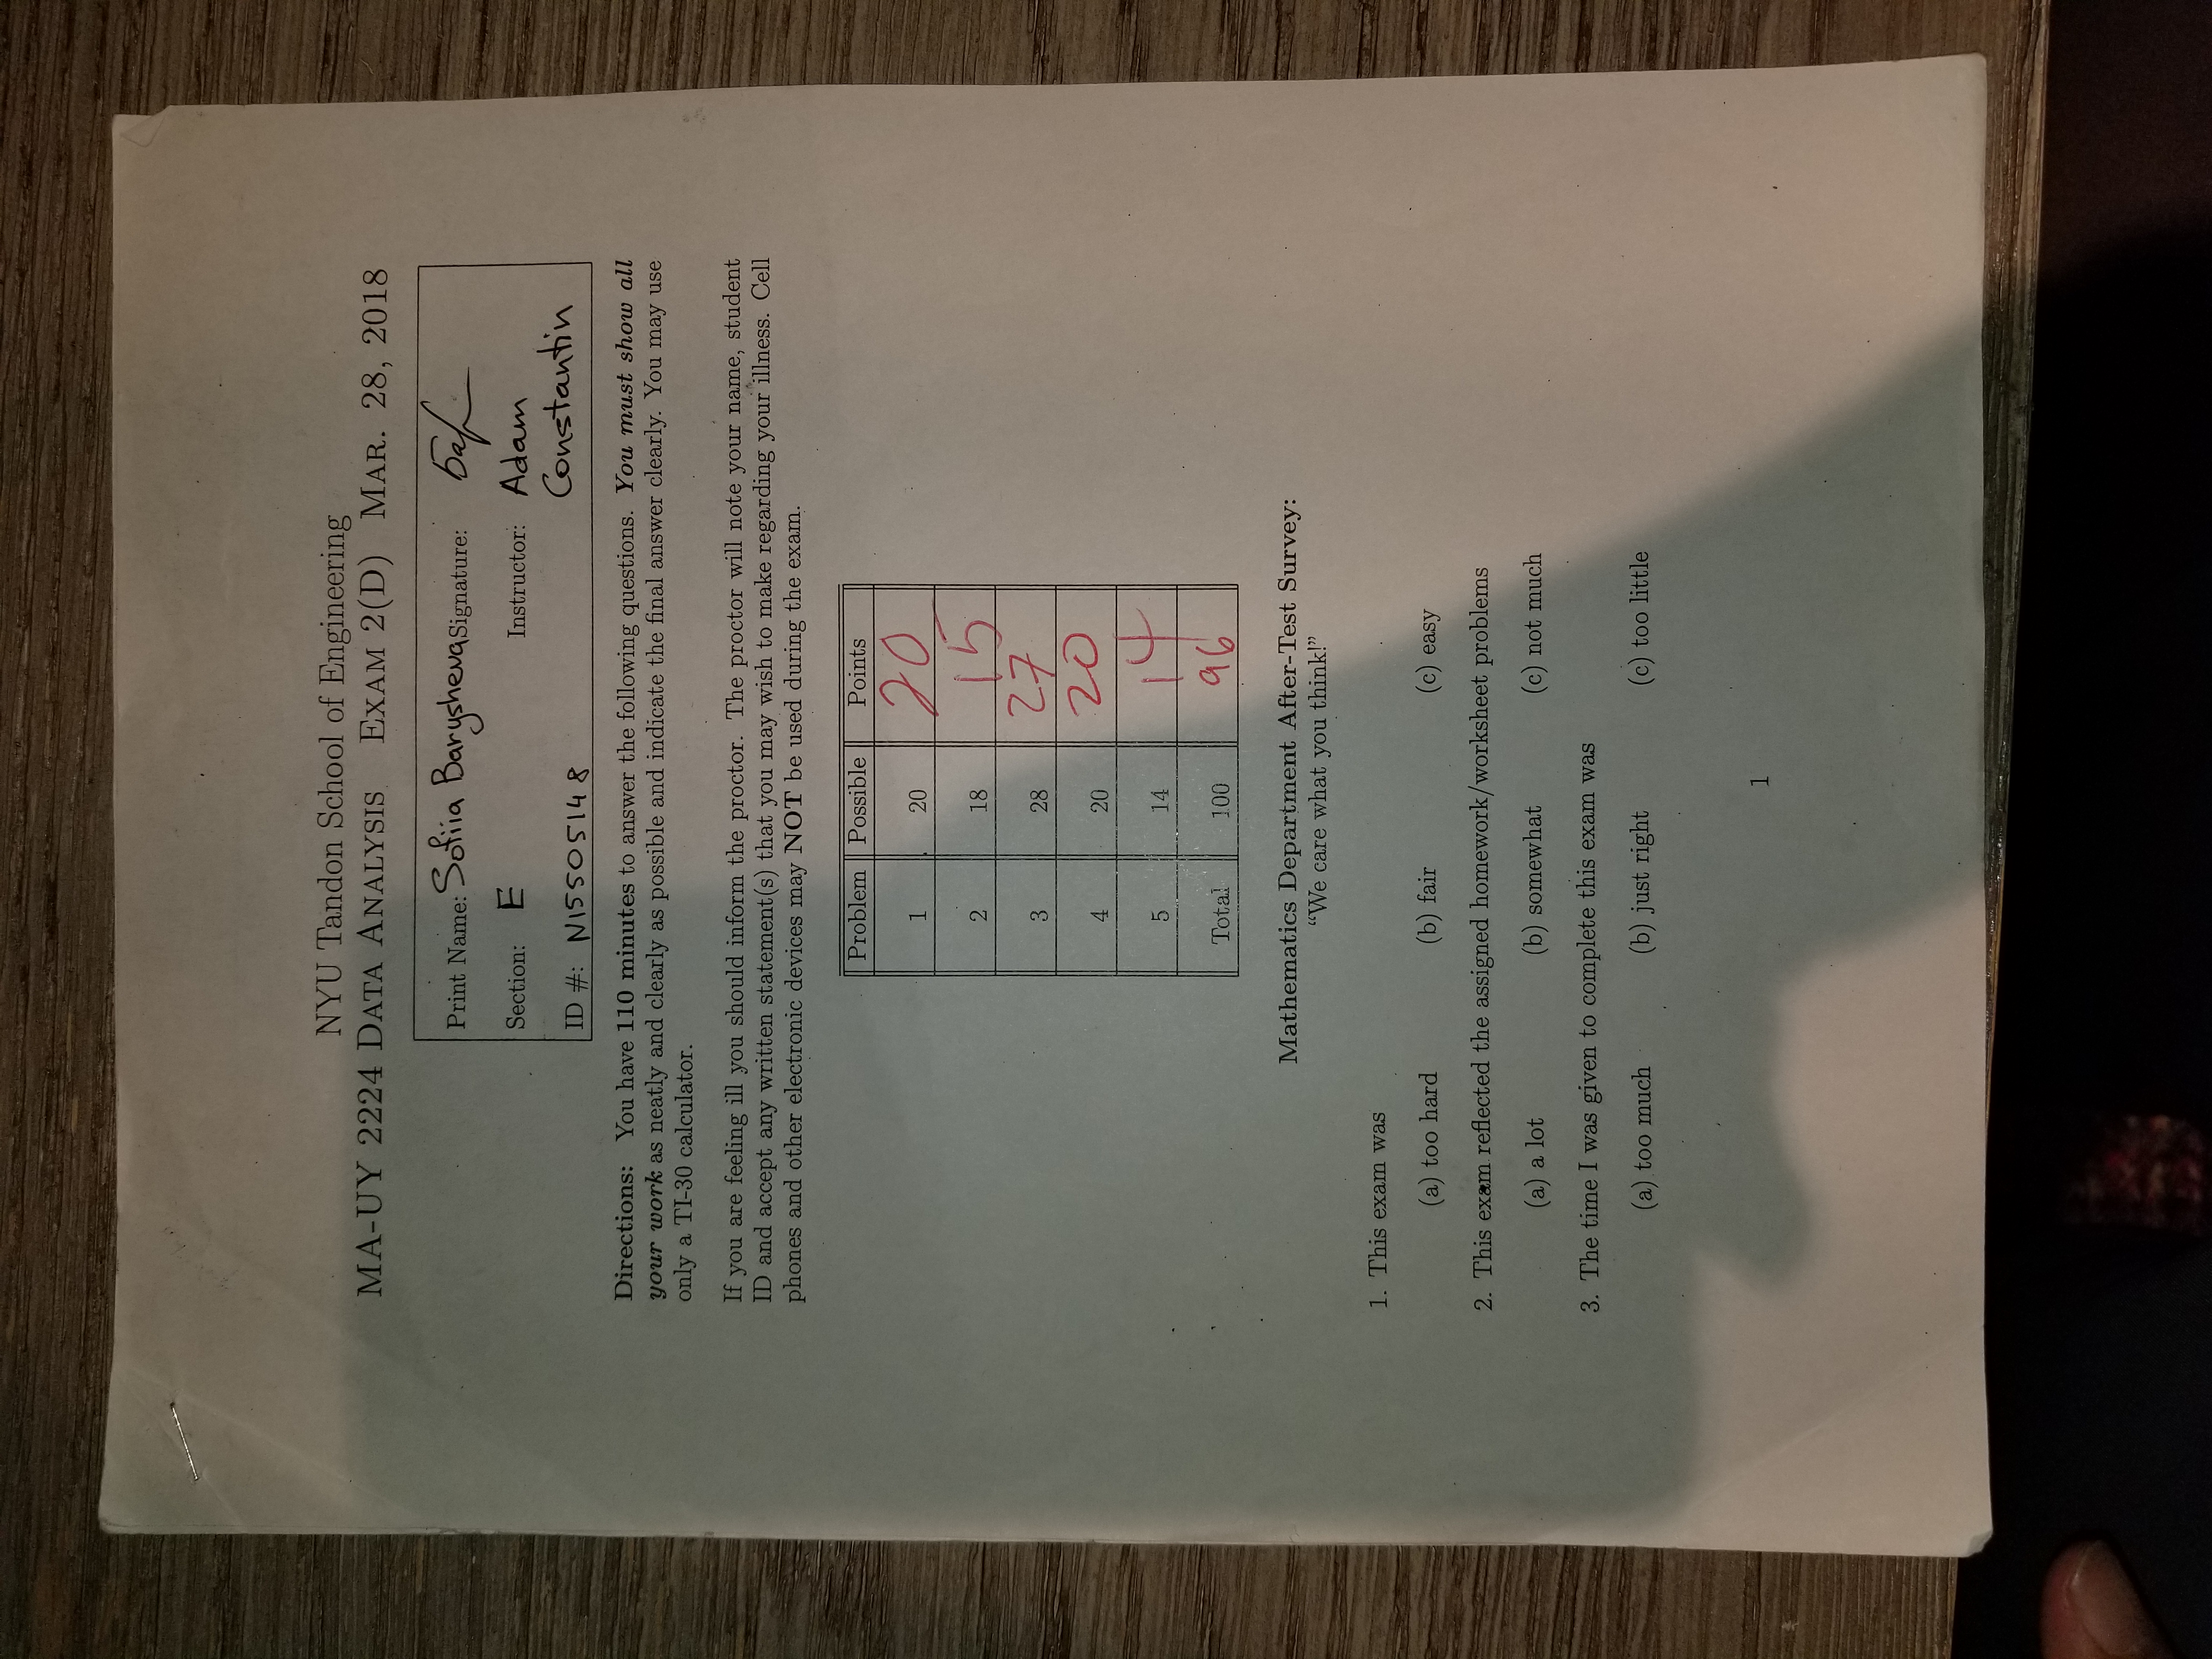 NYU Tandon School of Engineering
MA-UY 2224 DATA ANALYSIS EXAM 2(D) MAR. 28, 2018
Print Name: Sofiia Barysheva Signature: Бар
Section: E Instructor: Adam
Constantin
ID #: N15505148
Directions: You have 110 minutes to answer the following questions. You must show all
your work as neatly and clearly as possible and indicate the final answer clearly. You may use
only a TI-30 calculator.
If you are feeling ill you should inform the proctor. The proctor will note your name, student
ID and accept any written statement(s) that you may wish to make regarding your illness. Cell
phones and other electronic devices may NOT be used during the exam.
Problem Possible Points
1 20 20
2 18 15
3 28 27
4 20 20
5 14 14
Total 100 96
Mathematics Department After-Test Survey:
“We care what you think!”
1. This exam was
(a) too hard (b) fair (c) easy
2. This exam reflected the assigned homework/worksheet problems
(a) a lot (b) somewhat (c) not much
3. The time I was given to complete this exam was
(a) too much (b) just right (c) too little
1